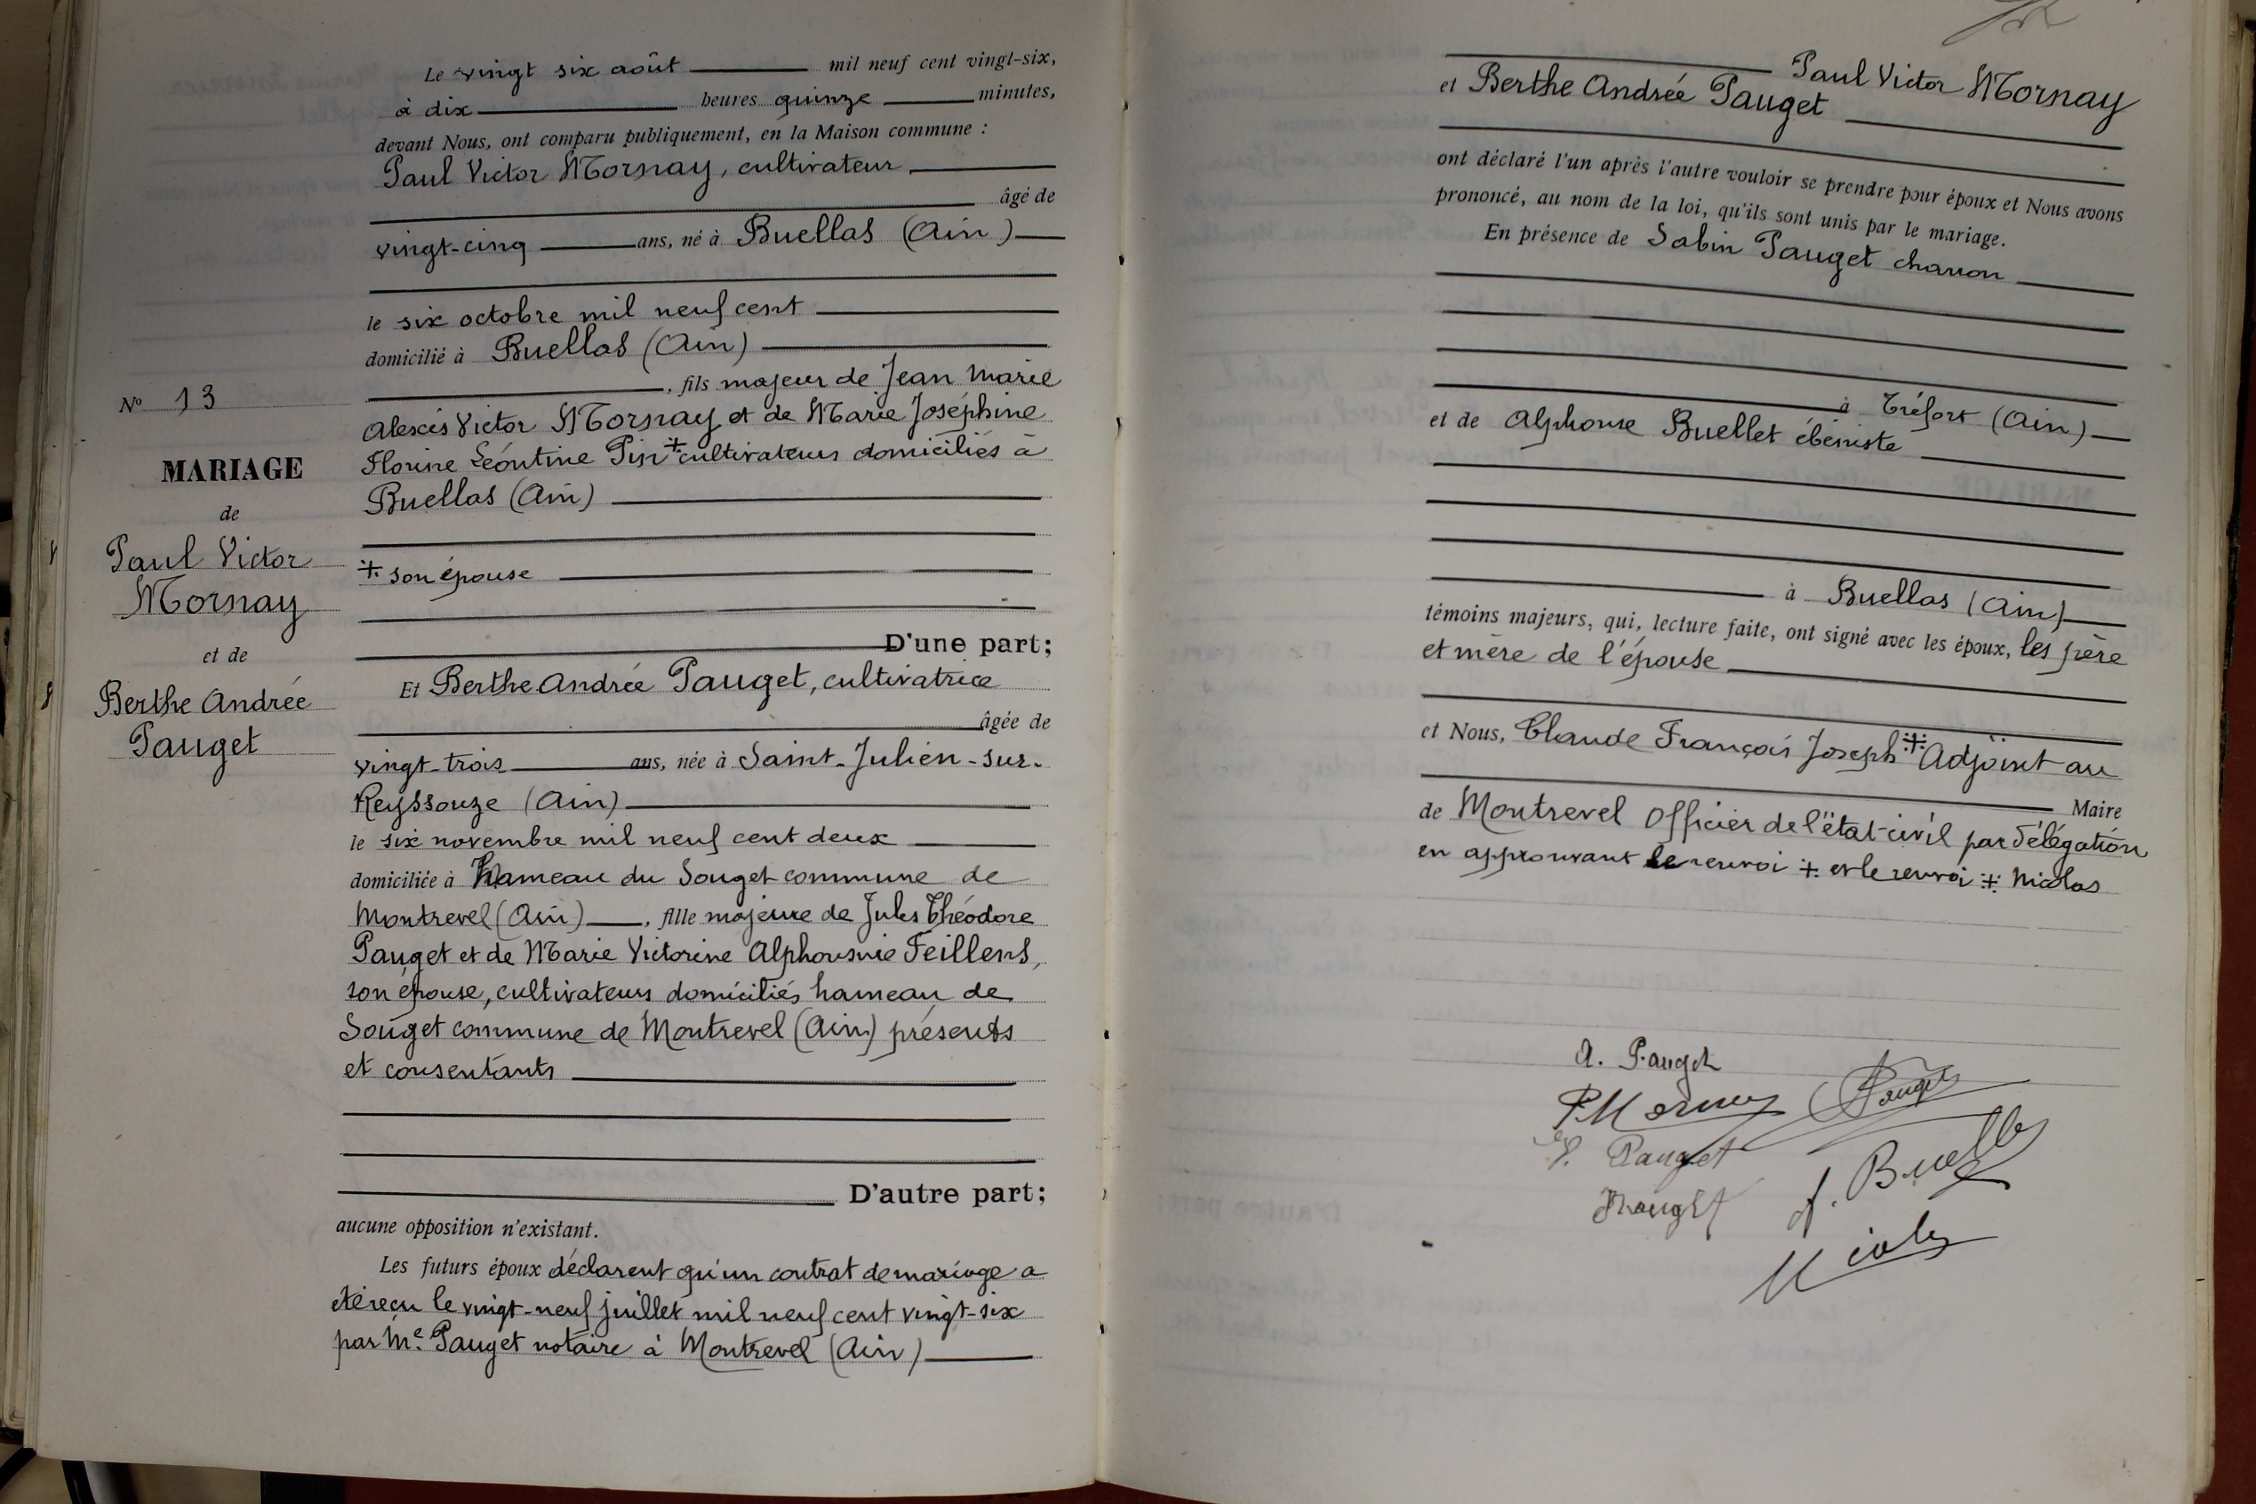 Le vingt six août mil neuf cent vingt-six,
à dix heures quinze minutes,
devant Nous, ont comparu publiquement, en la Maison commune :
Paul Victor Mornay, cultivateur
âgé de
vingt-cinq ans, né à Buellas (Ain)
le six octobre mil neuf cent
domicilié à Buellas (Ain)
, fils majeur de Jean Marie
Alexis Victor Mornay et de Marie Joséphine
Florine Léontine Pin ⁜ cultivateurs domiciliés à
Buellas (Ain)
⁜ son épouse
D'une part;
Et Berthe Andrée Pauget, cultivatrice
âgée de
vingt-trois ans, née à Saint-Julien-sur-
Reyssouze (Ain)
le six novembre mil neuf cent deux
domiciliée à hameau du Souget commune de
Montrevel (Ain), fille majeure de Jules Théodore
Pauget et de Marie Victorine Alphonsine Feillens,
son épouse, cultivateurs domiciliés hameau de
Souget commune de Montrevel (Ain) présents
et consentants
D'autre part;
aucune opposition n'existant.
Les futurs époux déclarent qu'un contrat de mariage a
été reçu le vingt-neuf juillet mil neuf cent vingt-six
par Me Pauget notaire à Montrevel (Ain)
N° 13
MARIAGE
de
Paul Victor
Mornay
et de
Berthe Andrée
Pauget
Paul Victor Mornay
et Berthe Andrée Pauget
ont déclaré l'un après l'autre vouloir se prendre pour époux et Nous avons
prononcé, au nom de la loi, qu'ils sont unis par le mariage.
En présence de Sabin Pauget charron
à Tréfort (Ain)
et de Alphonse Buellet ébéniste
à Buellas (Ain)
témoins majeurs, qui, lecture faite, ont signé avec les époux, les père
et mère de l'épouse
et Nous, Claude François Joseph ⁜ Adjoint au
Maire
de Montrevel Officier de l'état-civil par délégation
en approuvant le renvoi ⁜ et le renvoi ⁜ Nicolas
A. Pauget
P. Mornay
Pauget
Pauget
A. Buellet
Pauget
Nicolas